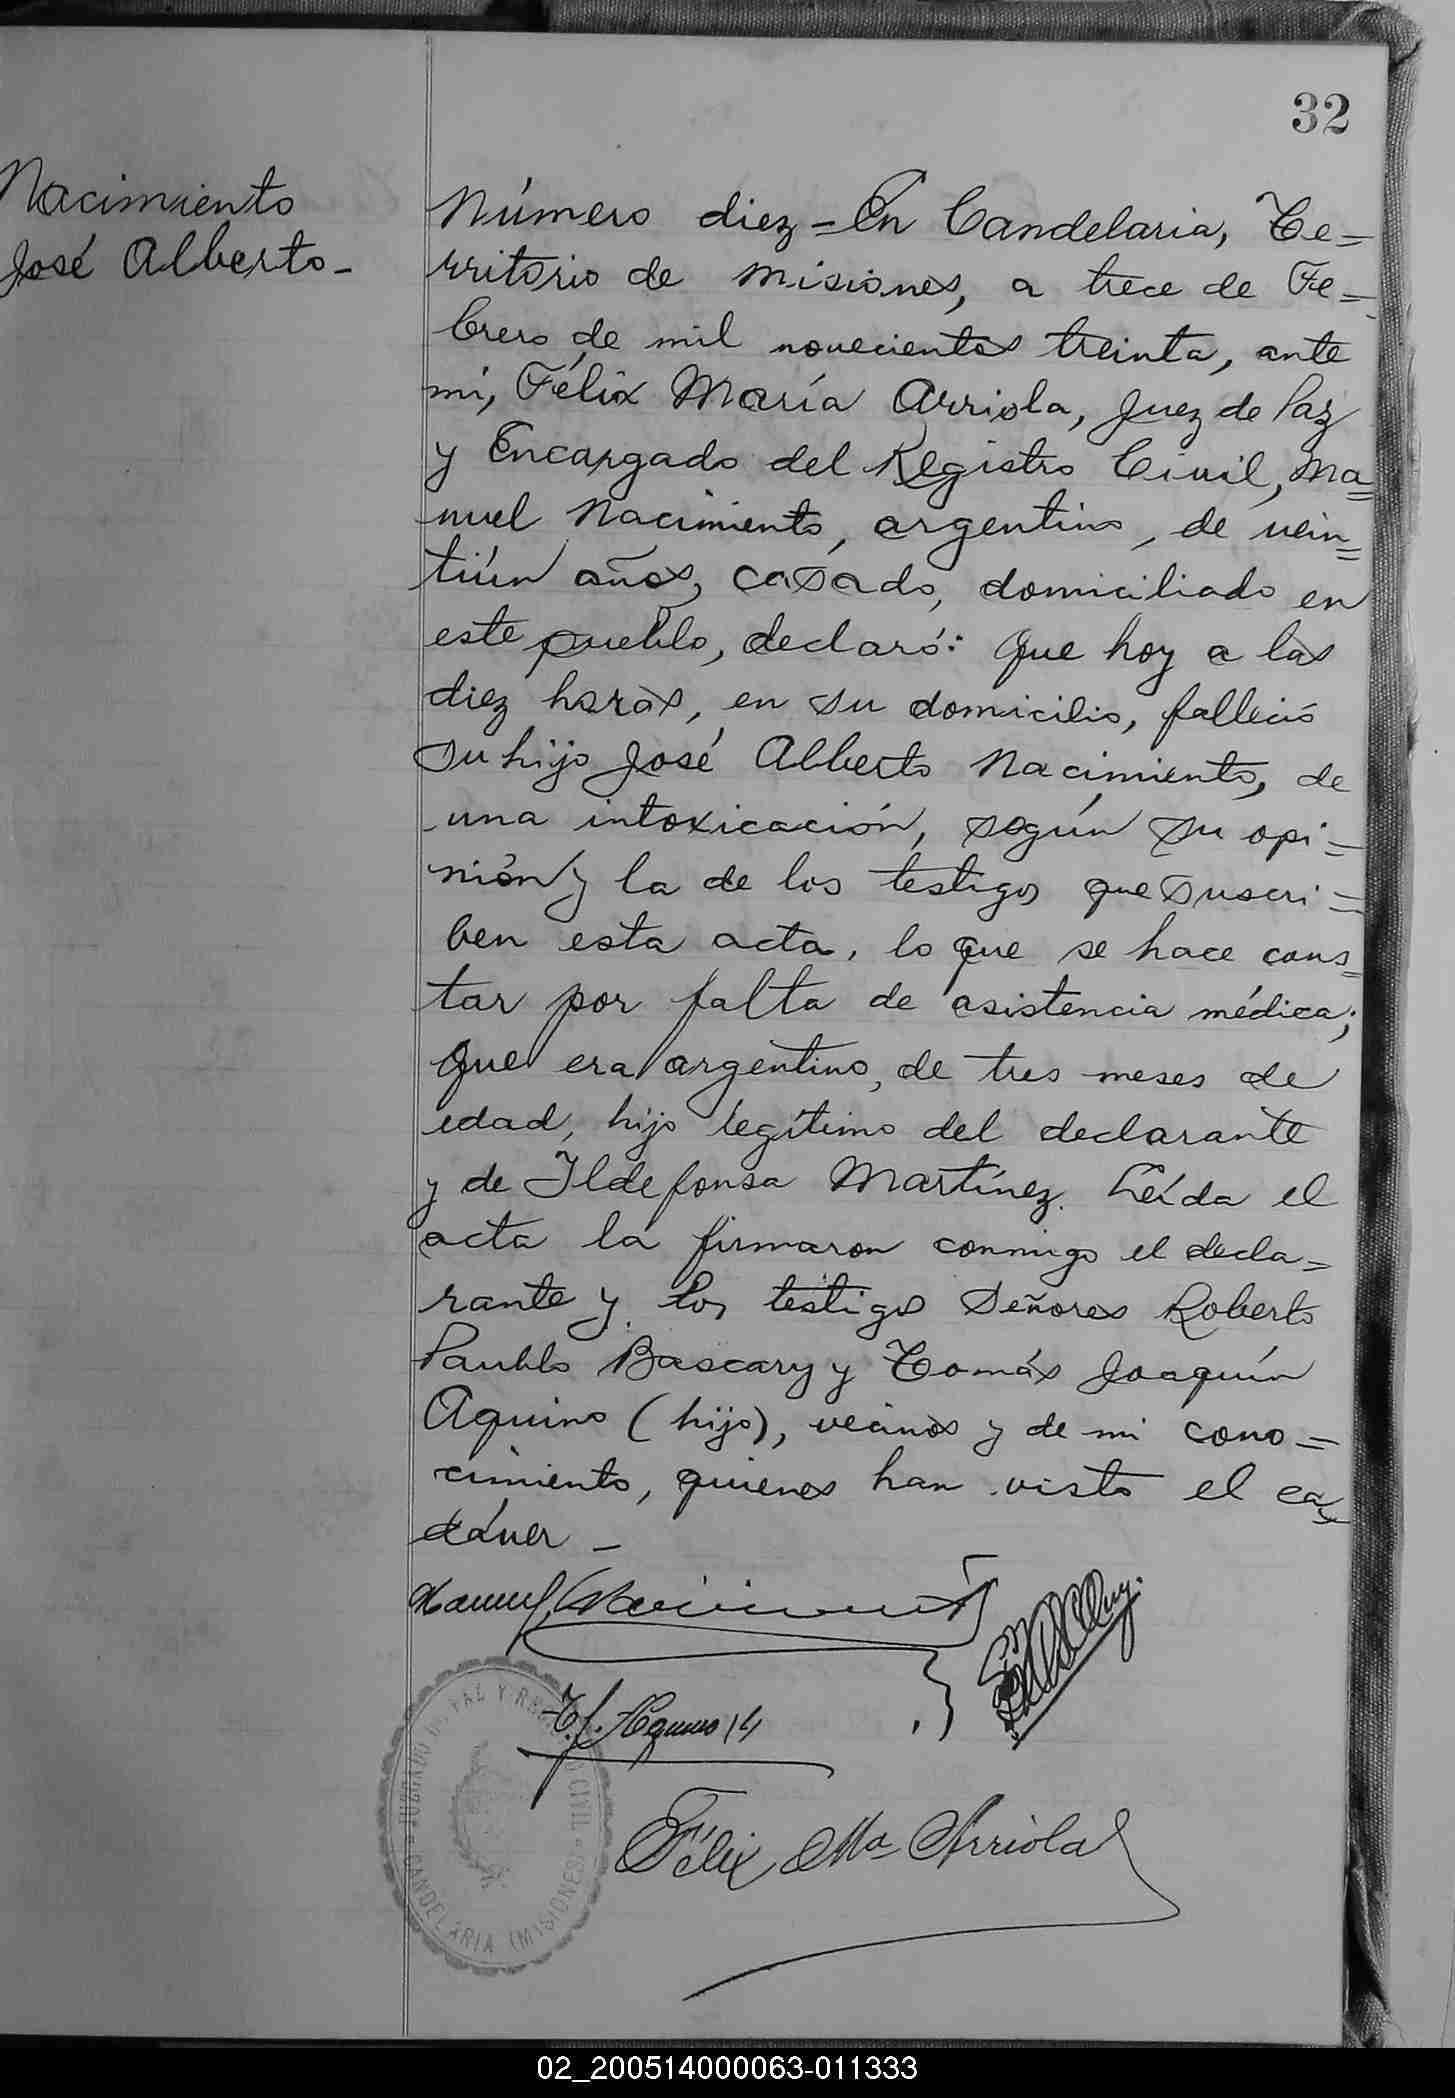 32
Nacimiento
José Alberto -
Número diez = En Candelaria, Te=
rritorio de Misiones, a trece de Fe=
brero de mil novecientos treinta, ante
mí, Félix María Arriola, Juez de Paz
y Encargado del Registro Civil, Ma=
nuel Nacimiento, argentino, de vein=
tiún años, casado, domiciliado en
este pueblo, declaró: Que hoy a las
diez horas, en su domicilio, falleció
su hijo José Alberto Nacimiento, de
una intoxicación, según su opi=
nión y la de los testigos que suscri=
ben esta acta, lo que se hace cons=
tar por falta de asistencia médica;
que era argentino, de tres meses de
edad, hijo legítimo del declarante
y de Ildefonsa Martínez. Leída el
acta la firmaron conmigo el decla=
rante y los testigos Señores Roberto
Paublo Bascary y Tomás Joaquín
Aquino (hijo), vecinos y de mi cono=
cimiento, quienes han visto el ca=
dáver -
Manuel Nacimiento
T. J. Aquino
Félix Ma Arriola
JUZGADO DE PAZ Y REGISTRO CIVIL
CANDELARIA (MISIONES)
02_200514000063-011333